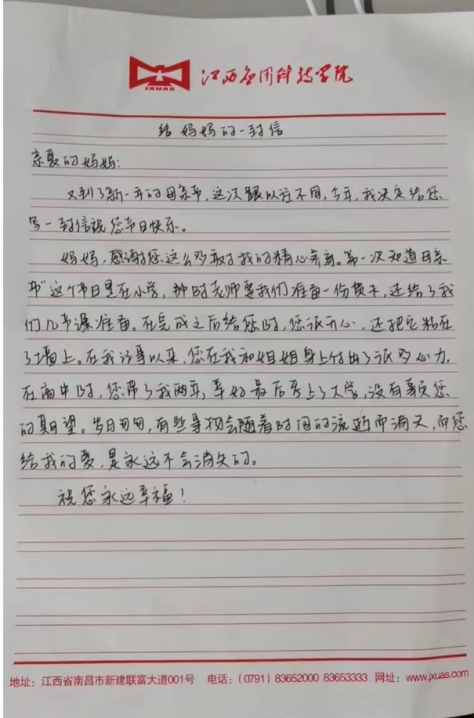 JXUAS
江西应用科技学院
给妈妈的一封信
亲爱的妈妈:
又到了新一年的母亲节,这次跟以往不同,今年,我决定给您
写一封信祝您节日快乐。
妈妈,感谢您这么多年对我的精心养育。第一次知道"母亲
节"这个节日是在小学,那时老师要我们准备一份贺卡,还给了我
们几节课准备。在完成之后给您时,您很开心,还把它粘在
了墙上。在我记事以来,您在我和姐姐身上付出了很多心力,
在高中时,您带了我两年,幸好最后考上了大学,没有辜负您
的期望。岁月匆匆,有些事物会随着时间的流逝而消失,而您
给我的爱,是永远不会消失的。
祝您永远幸福!
地址:江西省南昌市新建联富大道001号 电话:(0791) 83652000 83653333 网址:www.jxuas.com